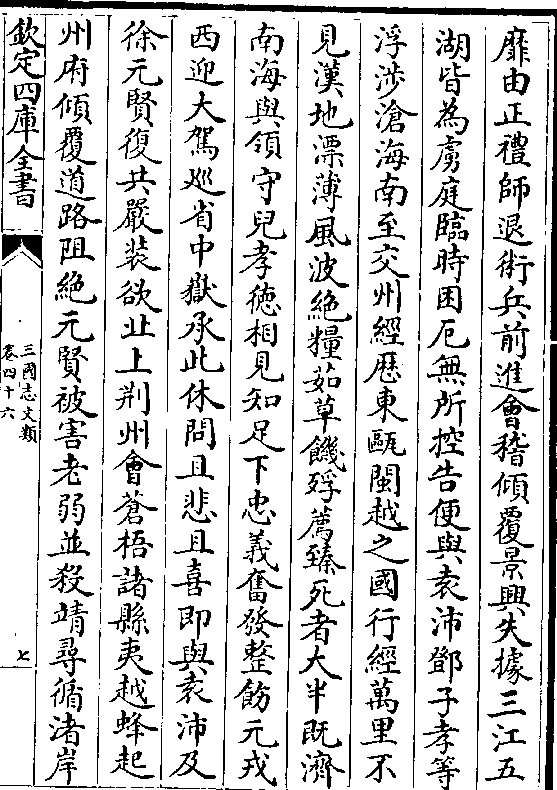 靡由正禮師退術兵前進㑹稽傾覆景興失據三江五
湖皆為虜庭臨時困厄無所控告便與袁沛鄧子孝等
浮渉滄海南至交州經歴東甌閩越之國行經萬里不
見漢地漂薄風波絶糧茹草饑殍薦臻死者大半既濟
南海與領守兒孝徳相見知足下忠義奮發整飭元戎
西迎大駕巡省中嶽承此休問且悲且喜即與袁沛及
徐元賢復共嚴装欲北上荆州㑹蒼梧諸縣夷越蜂起
州府傾覆道路阻絶元賢被害老弱並殺靖尋循渚岸
欽定四庫全書
三國志文類
卷四十六
七